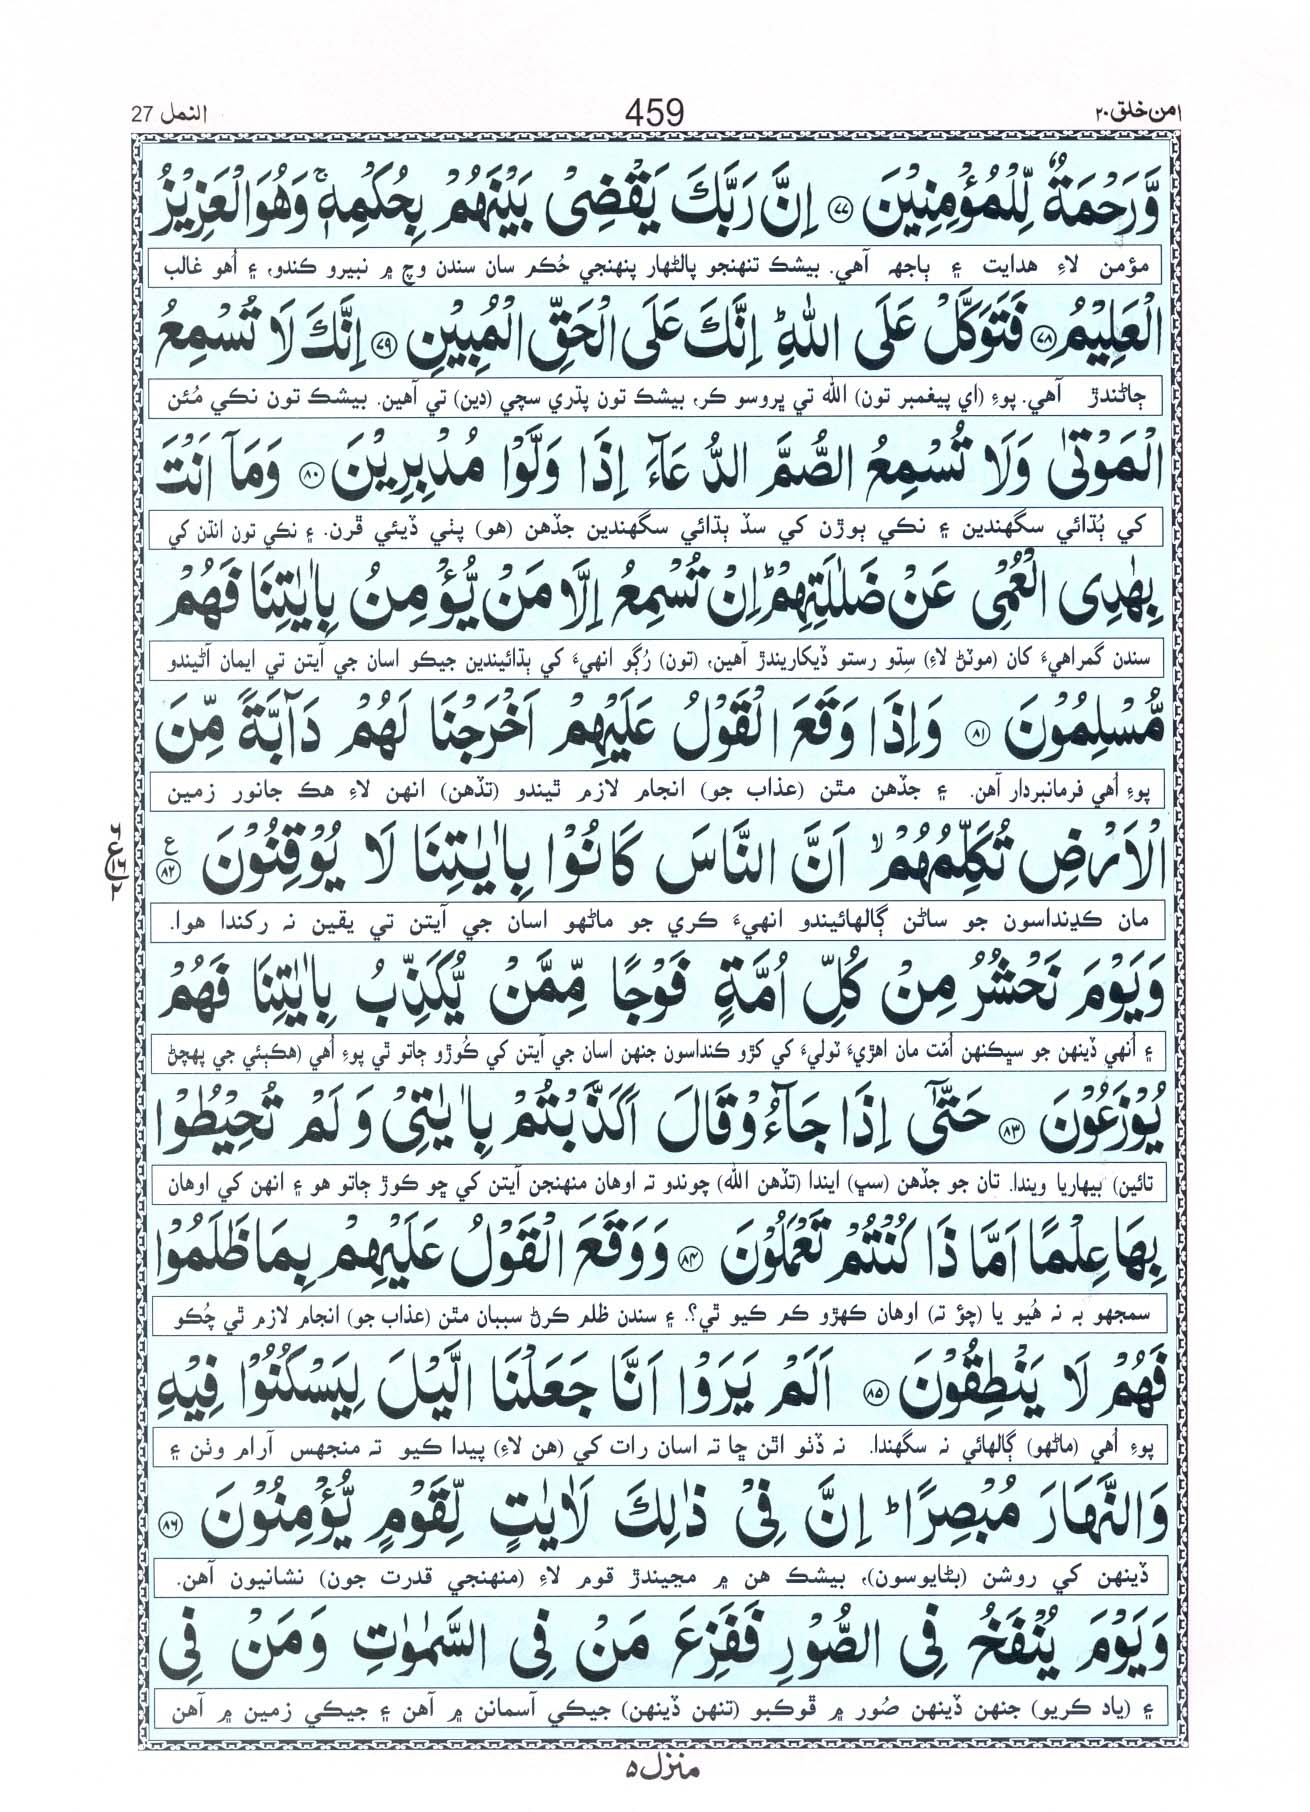 امن خلق ۲۰
459
النمل 27
وَّرَحْمَةٌ لِّلْمُؤْمِنِيْنَ ﴿۷۷﴾ اِنَّ رَبَّكَ يَقْضِيْ بَيْنَهُمْ بِحُكْمِهٖ ۚ وَهُوَ الْعَزِيْزُ
مؤمن لاءِ هدايت ۽ ٻاجهہ آهي. بيشڪ تنهنجو پالڻهار پنهنجي حُڪم سان سندن وچ ۾ نبيرو ڪندو، ۽ اُهو غالب
الْعَلِيْمُ ﴿۷۸﴾ فَتَوَكَّلْ عَلَى اللّٰهِ ؕ اِنَّكَ عَلَى الْحَقِّ الْمُبِيْنِ ﴿۷۹﴾ اِنَّكَ لَا تُسْمِعُ
ڄاڻندڙ آهي. پوءِ (اي پيغمبر تون) الله تي ڀروسو ڪر، بيشڪ تون پڌري سچي (دين) تي آهين. بيشڪ تون نڪي مُئن
الْمَوْتٰى وَلَا تُسْمِعُ الصُّمَّ الدُّعَآءَ اِذَا وَلَّوْا مُدْبِرِيْنَ ﴿۸۰﴾ وَمَآ اَنْتَ
کي ٻُڌائي سگهندين ۽ نڪي ٻوڙن کي سڏ ٻڌائي سگهندين جڏهن (هو) پٺي ڏيئي ڦرن. ۽ نڪي تون انڌن کي
بِهٰدِى الْعُمْيِ عَنْ ضَلٰلَتِهِمْ ؕ اِنْ تُسْمِعُ اِلَّا مَنْ يُّؤْمِنُ بِاٰيٰتِنَا فَهُمْ
سندن گمراهيءَ کان (موٽڻ لاءِ) سِڌو رستو ڏيکاريندڙ آهين، (تون) رُڳو انهيءَ کي ٻڌائيندين جيڪو اسان جي آيتن تي ايمان آڻيندو
مُّسْلِمُوْنَ ﴿۸۱﴾ وَاِذَا وَقَعَ الْقَوْلُ عَلَيْهِمْ اَخْرَجْنَا لَهُمْ دَآبَّةً مِّنَ
پوءِ اُهي فرمانبردار آهن. ۽ جڏهن مٿن (عذاب جو) انجام لازم ٿيندو (تڏهن) انهن لاءِ هڪ جانور زمين
الْاَرْضِ تُكَلِّمُهُمْ ۙ اَنَّ النَّاسَ كَانُوْا بِاٰيٰتِنَا لَا يُوْقِنُوْنَ ﴿۸۲﴾ ع
مان ڪڍنداسون جو ساڻن ڳالهائيندو انهيءَ ڪري جو ماڻهو اسان جي آيتن تي يقين نہ رکندا هوا.
وَيَوْمَ نَحْشُرُ مِنْ كُلِّ اُمَّةٍ فَوْجًا مِّمَّنْ يُّكَذِّبُ بِاٰيٰتِنَا فَهُمْ
۽ اُنهي ڏينهن جو سڀڪنهن اُمّت مان اهڙيءَ ٽوليءَ کي کڙو ڪنداسون جنهن اسان جي آيتن کي ڪُوڙو ڄاتو ٿي پوءِ اُهي (هڪٻئي جي پهچڻ
يُوْزَعُوْنَ ﴿۸۳﴾ حَتّٰٓى اِذَا جَآءُوْ قَالَ اَكَذَّبْتُمْ بِاٰيٰتِيْ وَلَمْ تُحِيْطُوْا
تائين) بيهاريا ويندا. تان جو جڏهن (سڀ) ايندا (تڏهن الله) چوندو تہ اوهان منهنجن آيتن کي ڇو ڪوڙ ڄاتو هو ۽ انهن کي اوهان
بِهَا عِلْمًا اَمَّا ذَا كُنْتُمْ تَعْمَلُوْنَ ﴿۸۴﴾ وَوَقَعَ الْقَوْلُ عَلَيْهِمْ بِمَا ظَلَمُوْا
سمجهو بہ نہ هُيو يا (چؤ تہ) اوهان ڪهڙو ڪم ڪيو ٿي؟. ۽ سندن ظلم ڪرڻ سببان مٿن (عذاب جو) انجام لازم ٿي چُڪو
فَهُمْ لَا يَنْطِقُوْنَ ﴿۸۵﴾ اَلَمْ يَرَوْا اَنَّا جَعَلْنَا الَّيْلَ لِيَسْكُنُوْا فِيْهِ
پوءِ اُهي (ماڻهو) ڳالهائي نہ سگهندا. نہ ڏٺو اٿن ڇا تہ اسان رات کي (هن لاءِ) پيدا ڪيو تہ منجهس آرام وٺن ۽
وَالنَّهَارَ مُبْصِرًا ؕ اِنَّ فِيْ ذٰلِكَ لَاٰيٰتٍ لِّقَوْمٍ يُّؤْمِنُوْنَ ﴿۸۶﴾
ڏينهن کي روشن (بڻايوسون)، بيشڪ هن ۾ مڃيندڙ قوم لاءِ (منهنجي قدرت جون) نشانيون آهن.
وَيَوْمَ يُنْفَخُ فِى الصُّوْرِ فَفَزِعَ مَنْ فِى السَّمٰوٰتِ وَمَنْ فِى
۽ (ياد ڪريو) جنهن ڏينهن صُور ۾ ڦوڪبو (تنهن ڏينهن) جيڪي آسمانن ۾ آهن ۽ جيڪي زمين ۾ آهن
منزل ۵